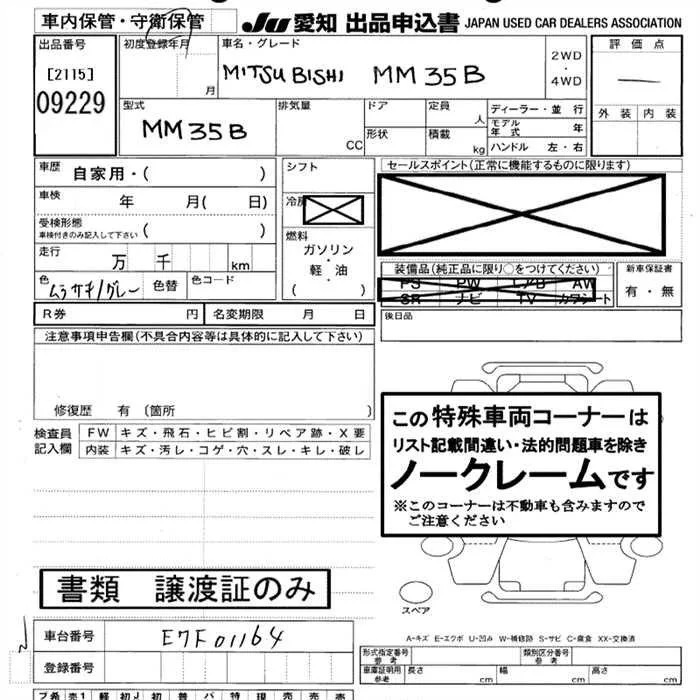 車内保管・守衛保管
JU 愛知 出品申込書 JAPAN USED CAR DEALERS ASSOCIATION
出品番号
[2115]
09229
初度登録年月
月
車名・グレード
MITSUBISHI MM35B
2WD
・
4WD
評価点
外装 内装
型式
MM35B
排気量
CC
ドア
形状
定員
人
積載
kg
ディーラー・並行
モデル年式 年
ハンドル 左・右
車歴 自家用・( )
車検 年 月( 日)
受検形態
車検付きのみ記入して下さい ( )
走行 万 千 km
色 ムラサキ/グレー 色替 色コード
シフト
冷房
燃料
ガソリン
・
軽・油
( )
セールスポイント(正常に機能するものに限ります)
装備品(純正品に限り○をつけてください)
PS PW AW
SR ナビ TV カワシート
新車保証書
有・無
R券 円 名変期限 月 日
後日品
注意事項申告欄(不具合内容等は具体的に記入して下さい)
修復歴 有 〔箇所 〕
検査員記入欄
FW キズ・飛石・ヒビ割・リペア跡・X要
内装 キズ・汚レ・コゲ・穴・スレ・キレ・破レ
この特殊車両コーナーは
リスト記載間違い・法的問題車を除き
ノークレームです
※このコーナーは不動車も含みますので
ご注意ください
書類 譲渡証のみ
スペア
A-キズ E-エクボ U-凹み W-補修跡 S-サビ C-腐食 XX-交換済
車台番号 E7F01164
登録番号
形式指定番号
参考
類別区分番号
参考
車庫証明用
参考
長さ cm 幅 cm 高さ cm